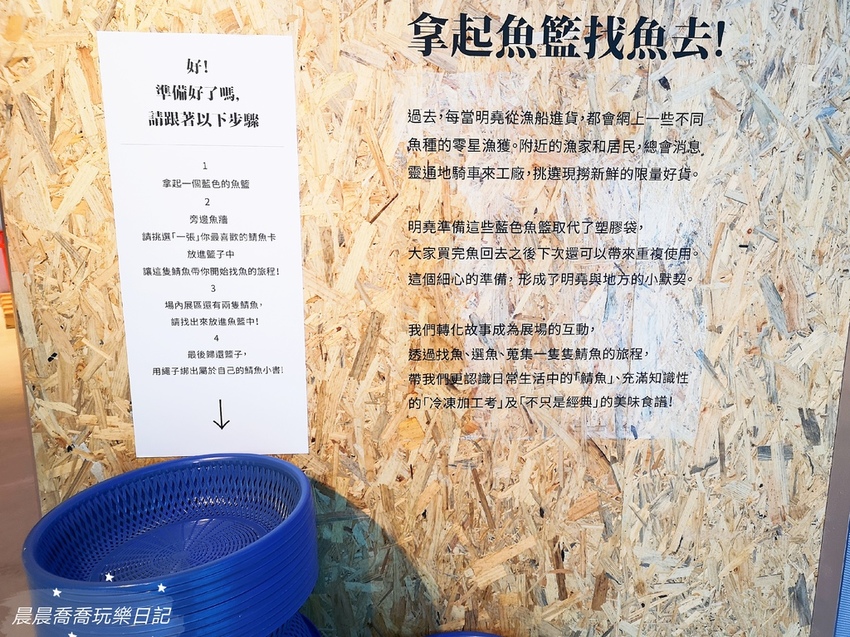 好!
準備好了嗎,
請跟著以下步驟
1
拿起一個藍色的魚籃
2
旁邊魚牆
請挑選「一張」你最喜歡的鯖魚卡
放進籃子中
讓這隻鯖魚帶你開始找魚的旅程!
3
場內展區還有兩隻鯖魚,
請找出來放進魚籃中!
4
最後歸還籃子,
用繩子綁出屬於自己的鯖魚小書!
拿起魚籃找魚去!
過去,每當明堯從漁船進貨,都會網上一些不同
魚種的零星漁獲。附近的漁家和居民,總會消息
靈通地騎車來工廠,挑選現撈新鮮的限量好貨。
明堯準備這些藍色魚籃取代了塑膠袋,
大家買完魚回去之後下次還可以帶來重複使用。
這個細心的準備,形成了明堯與地方的小默契。
我們轉化故事成為展場的互動,
透過找魚、選魚、蒐集一隻隻鯖魚的旅程,
帶我們更認識日常生活中的「鯖魚」、充滿知識性
的「冷凍加工考」及「不只是經典」的美味食譜!
晨晨喬喬玩樂日記